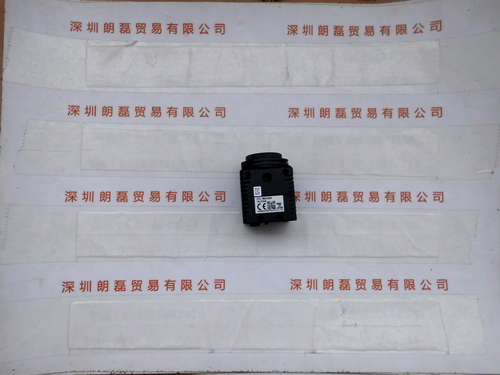 深圳朗磊贸易有限公司 深圳朗磊贸易有限公司
深圳朗磊贸易有限公司 深圳朗磊贸易有限公司
深圳朗磊贸易有限公司 深圳朗磊贸易有限公司
深圳朗磊贸易有限公司 深圳朗磊贸易有限公司
CE